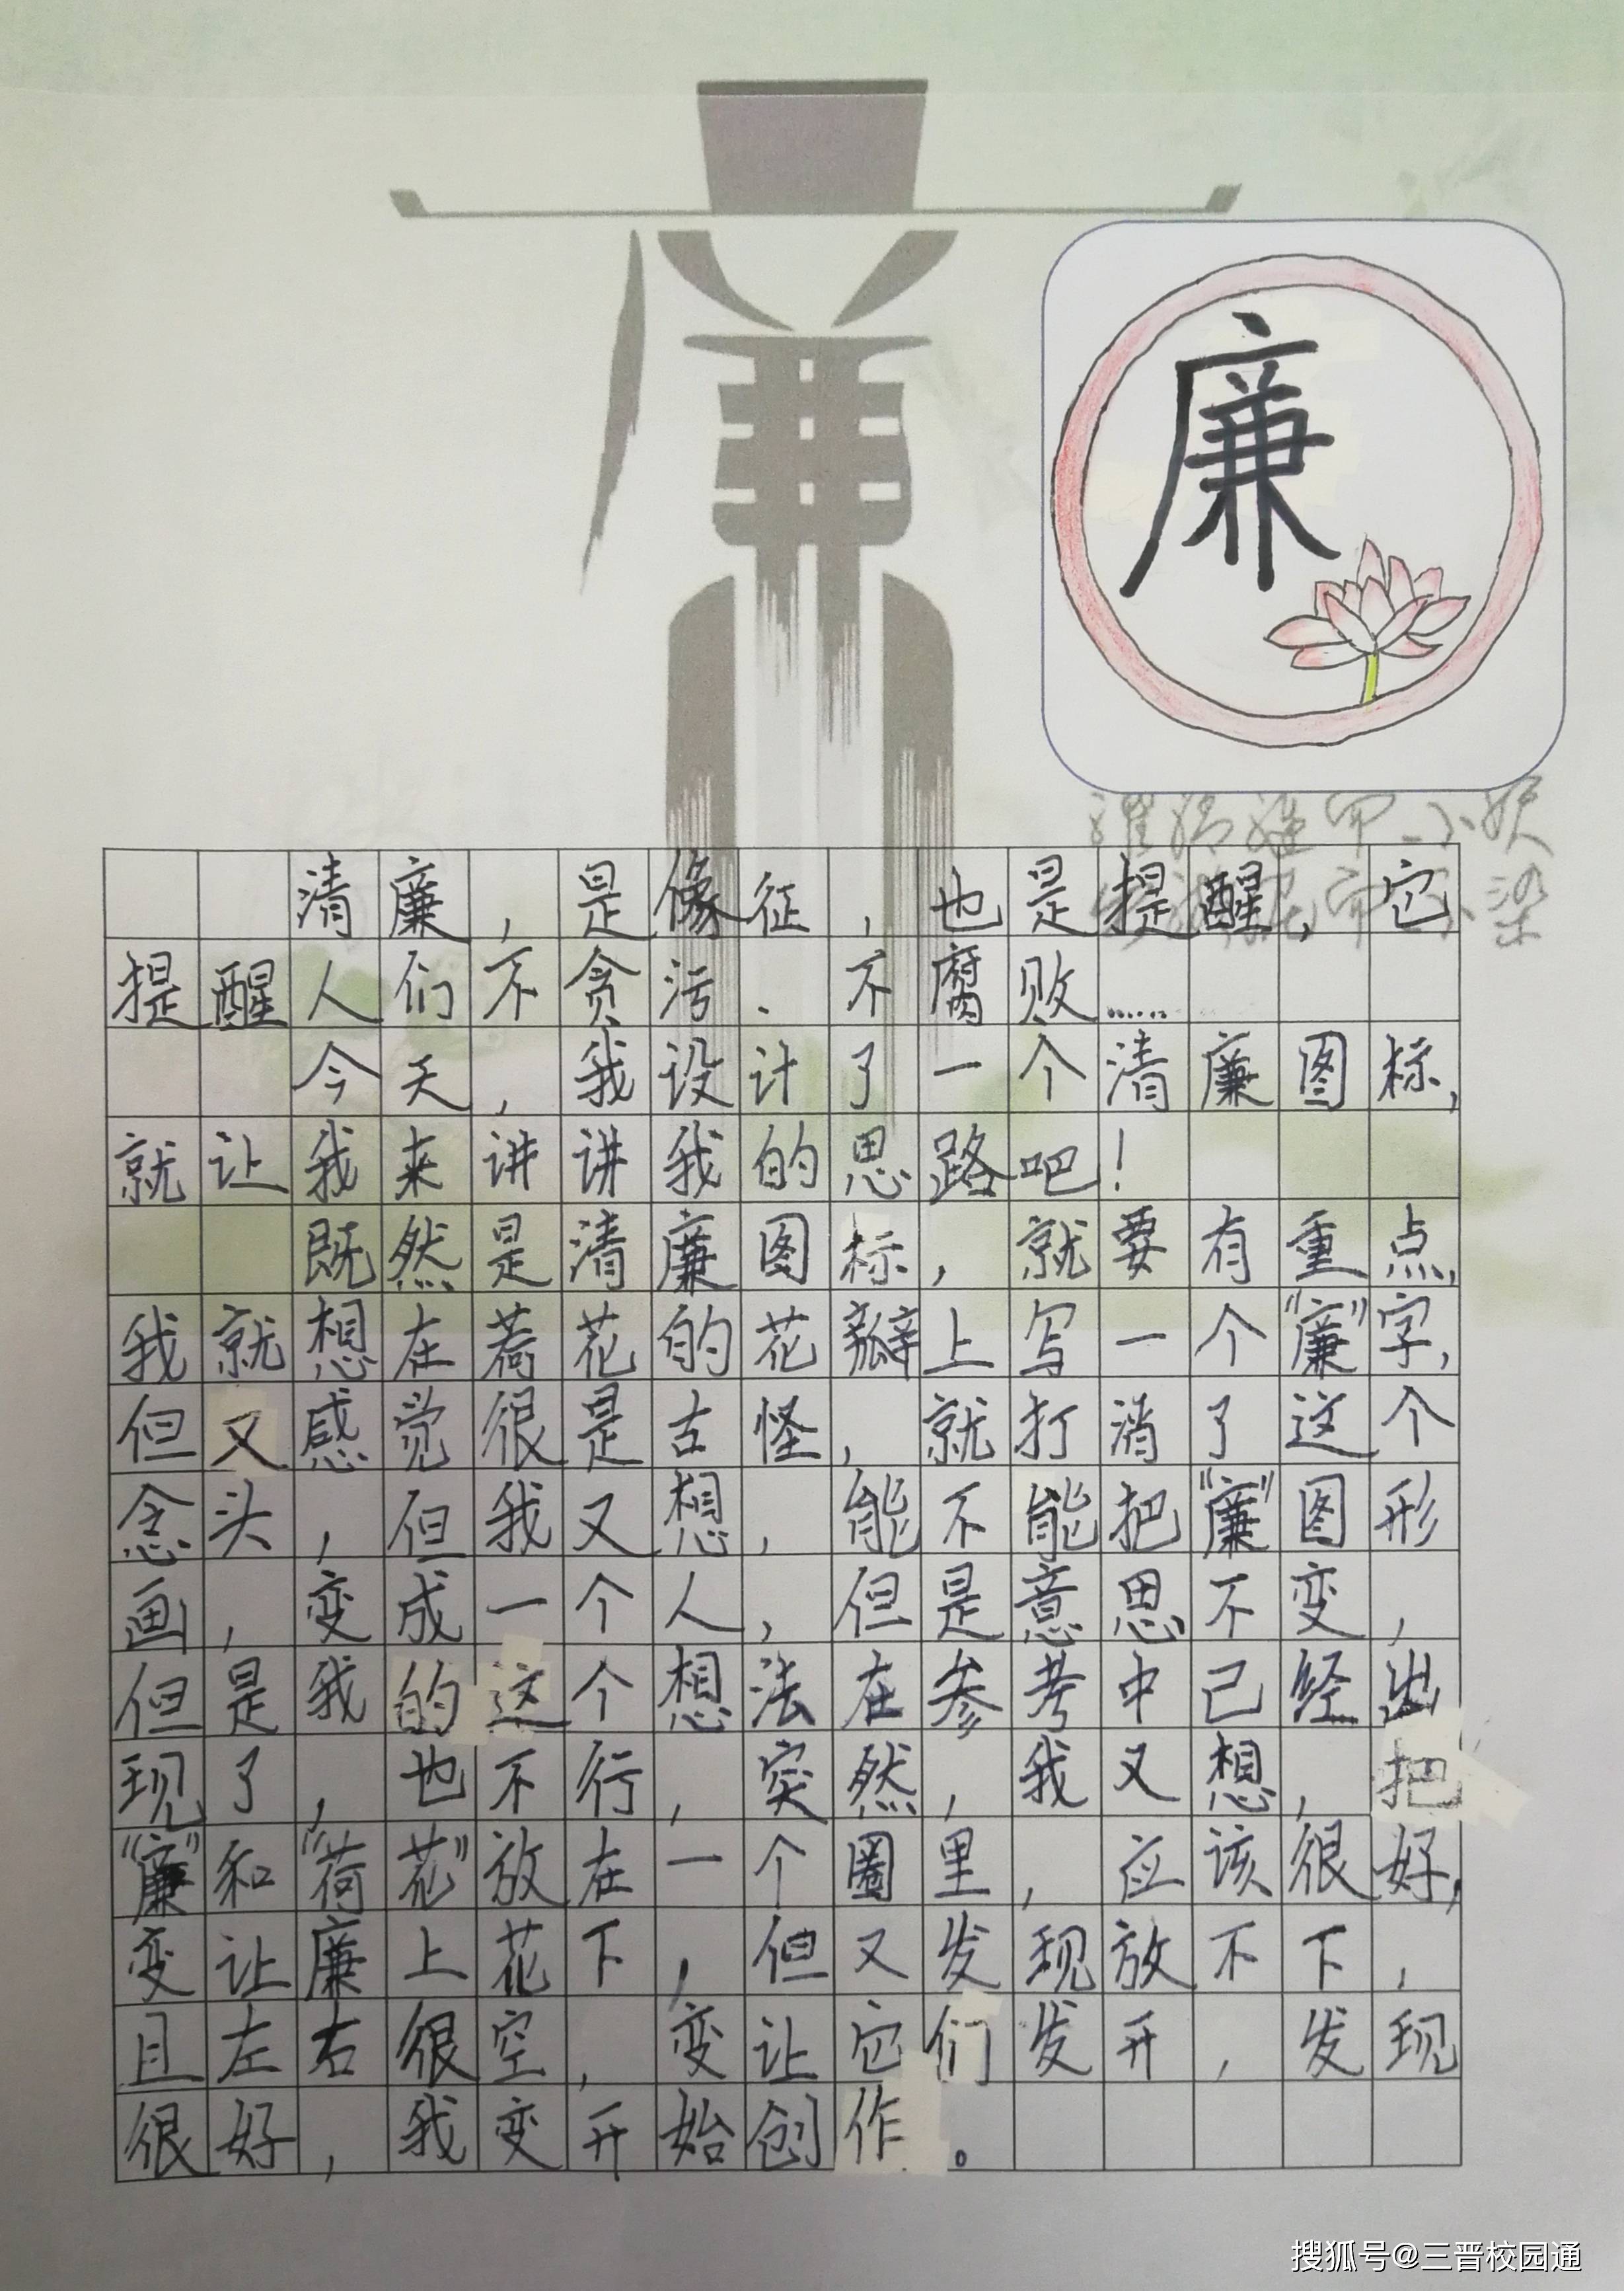 廉
清廉，是像征，也是提醒，它
提醒人们不贪污、不腐败……
今天，我设计了一个清廉图标，
就让我来讲讲我的思路吧！
既然是清廉图标，就要有重点，
我就想在荷花的花瓣上写一个“廉”字，
但又感觉很是古怪，就打消了这个
念头，但我又想，能不能把“廉”图形
画，变成一个人，但是意思不变，
但是我的这个想法在参考中已经出
现了，也不行，突然，我又想，把
“廉”和“荷花”放在一个圈里，应该很好，
变让廉上花下，但又发现放不下，
且左右很空，变让它们发开，发现
很好，我变开始创作。
搜狐号@三晋校园通